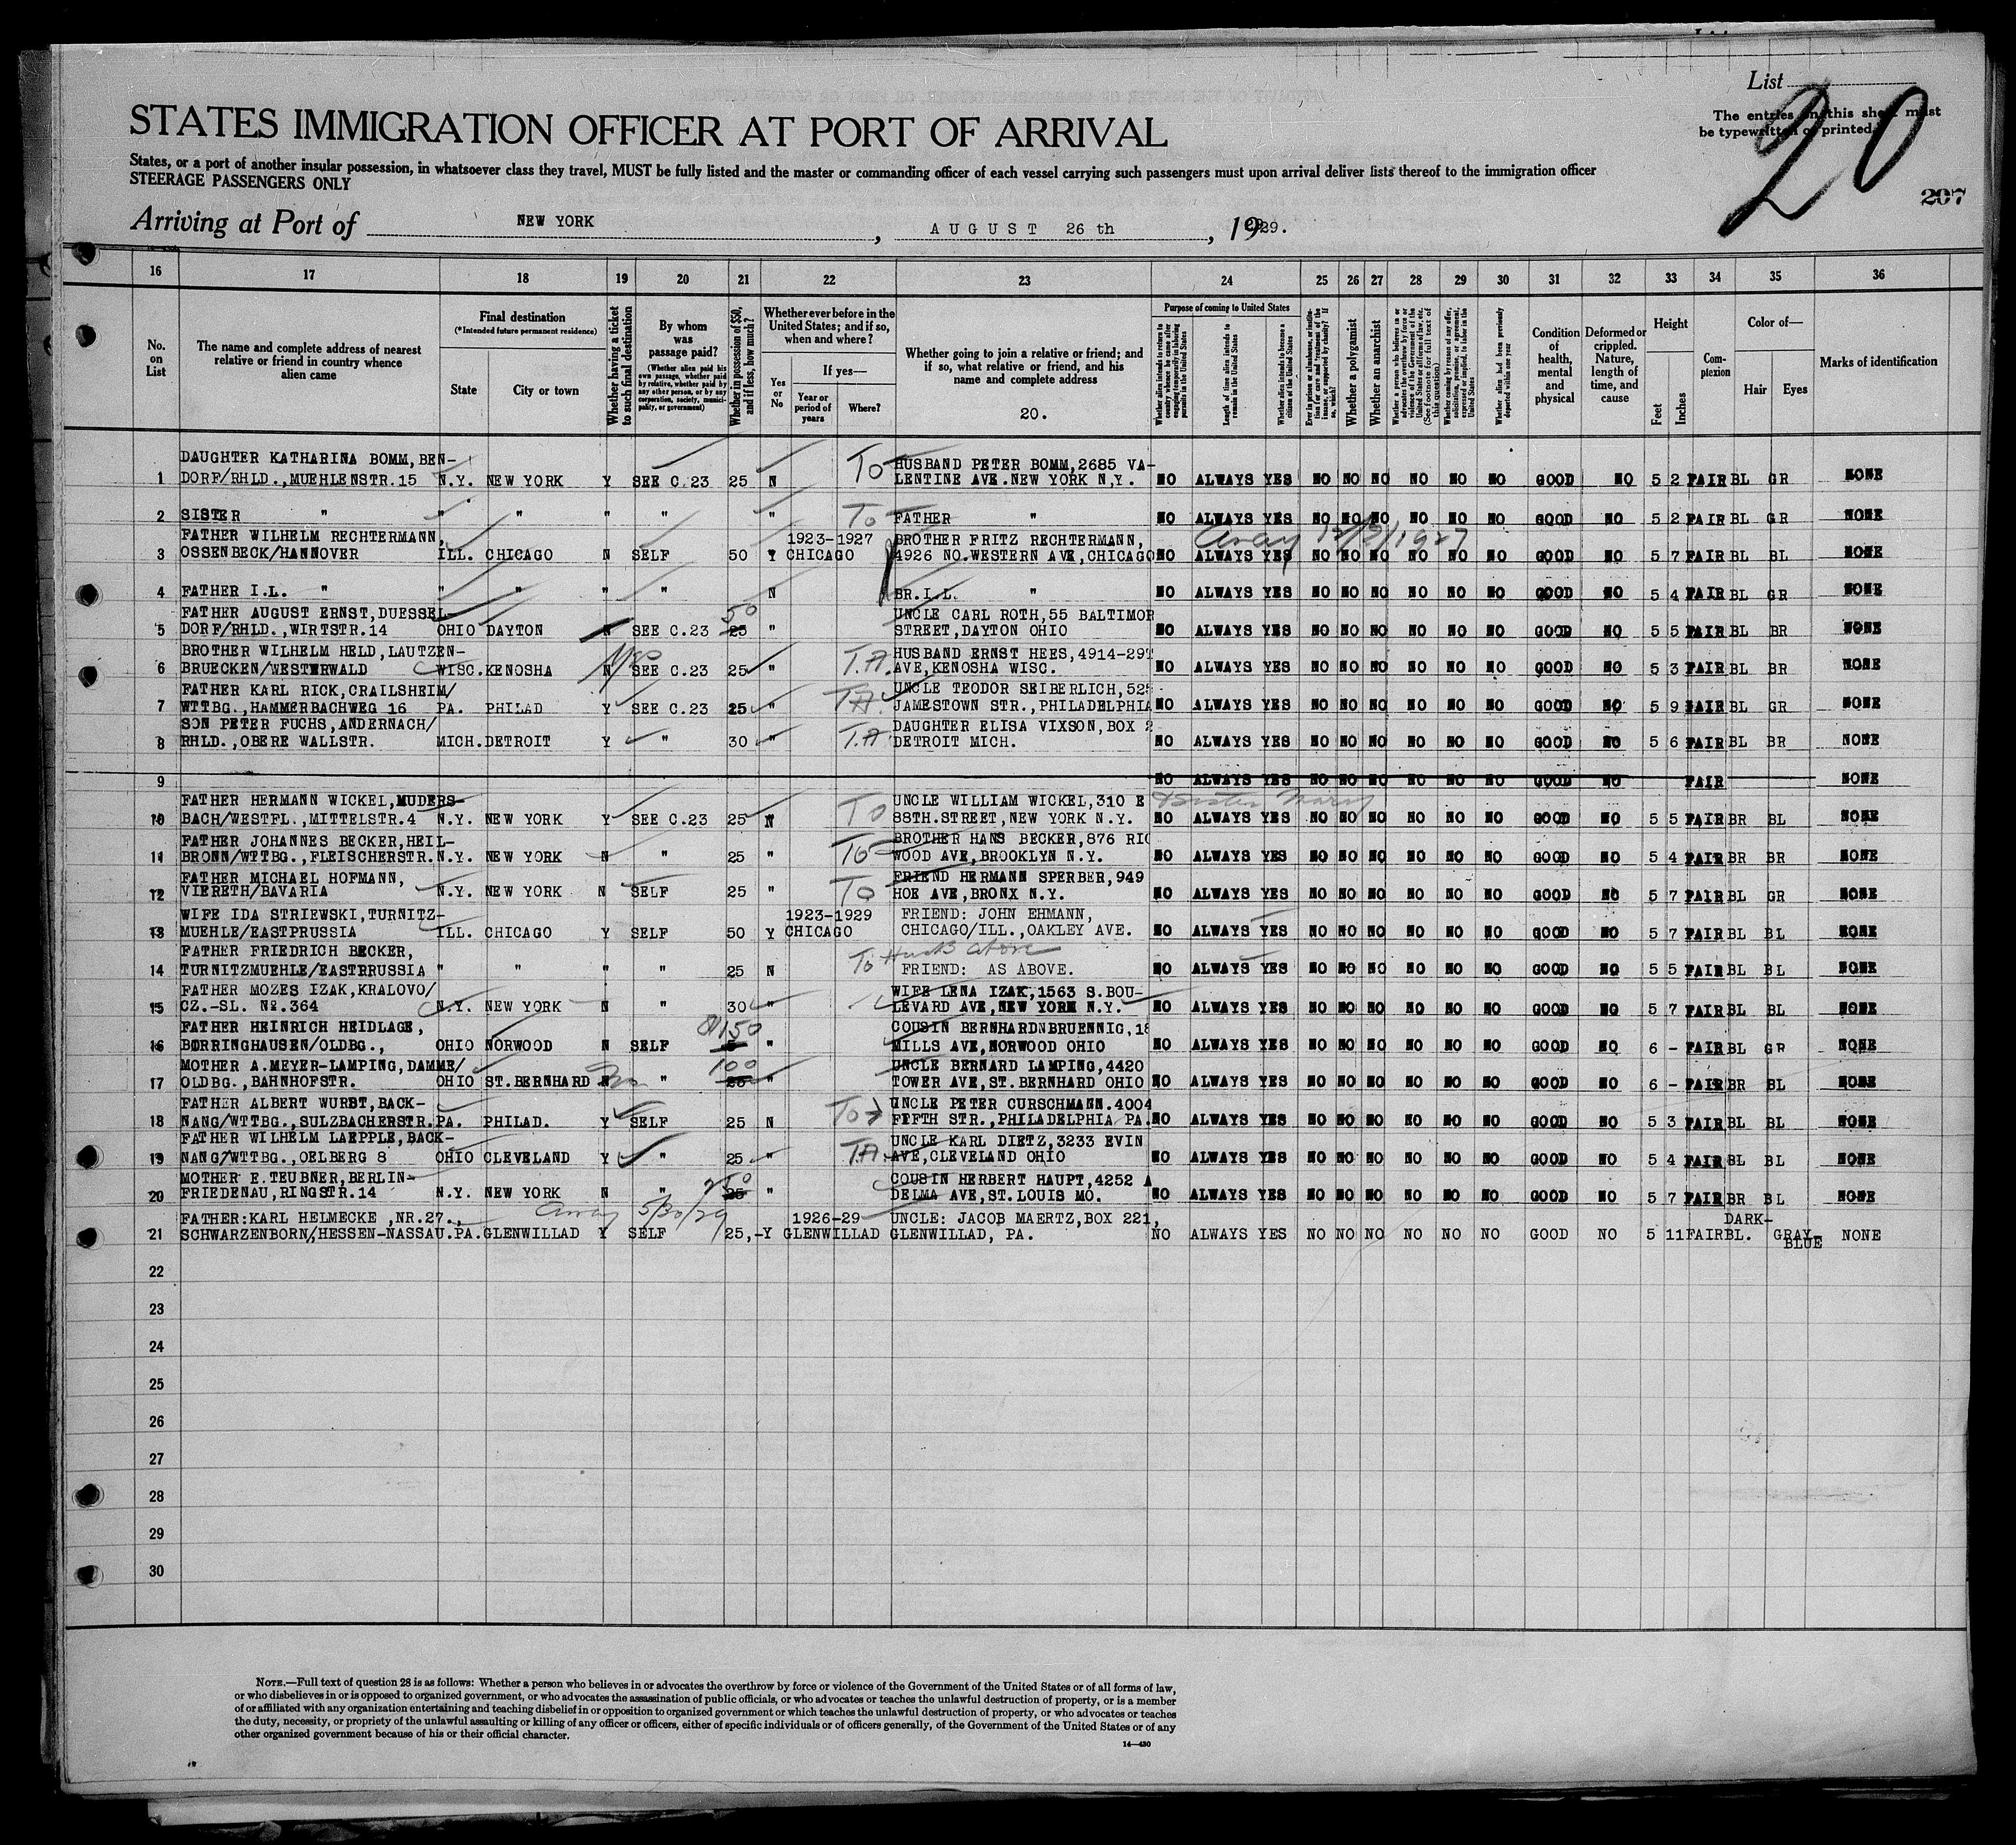 List
20
The entries on this sheet must
be typewritten or printed.
207
STATES IMMIGRATION OFFICER AT PORT OF ARRIVAL
States, or a port of another insular possession, in whatsoever class they travel, MUST be fully listed and the master or commanding officer of each vessel carrying such passengers must upon arrival deliver lists thereof to the immigration officer
STEERAGE PASSENGERS ONLY
Arriving at Port of NEW YORK, AUGUST 26 th, 1929.
16 17 18 19 20 21 22 23 24 25 26 27 28 29 30 31 32 33 34 35 36
No. on List
The name and complete address of nearest relative or friend in country whence alien came
Final destination
(*Intended future permanent residence)
State
City or town
Whether having a ticket to such final destination
By whom was passage paid?
(Whether alien paid his own passage, whether paid by relative, whether paid by any other person, or by any corporation, society, municipality, or government)
Whether in possession of $50, and if less, how much?
Whether ever before in the United States; and if so, when and where?
Yes or No
If yes—
Year or period of years
Where?
Whether going to join a relative or friend; and if so, what relative or friend, and his name and complete address
20.
Purpose of coming to United States
Whether alien intends to return to country whence he came after engaging temporarily in laboring pursuits in the United States
Length of time alien intends to remain in the United States
Whether alien intends to become a citizen of the United States
Ever in prison or almshouse, or institution for care and treatment of the insane, or supported by charity? If so, which?
Whether a polygamist
Whether an anarchist
Whether a person who believes in or advocates the overthrow by force or violence of the Government of the United States or all forms of law, etc. (See footnote for full text of this question)
Whether coming by reason of any offer, solicitation, promise, or agreement, expressed or implied, to labor in the United States
Whether alien had been previously deported within one year
Condition of health, mental and physical
Deformed or crippled. Nature, length of time, and cause
Height
Feet
Inches
Complexion
Color of—
Hair
Eyes
Marks of identification
DAUGHTER KATHARINA BOMM, BEN- HUSBAND PETER BOMM,2685 VA-
1 DORF/RHLD.,MUEHLENSTR.15 N.Y. NEW YORK Y SEE C.23 25 N To LENTINE AVE.NEW YORK N.Y. NO ALWAYS YES NO NO NO NO NO NO GOOD NO 5 2 FAIR BL GR NONE
2 SISTER " " " " " " To FATHER " NO ALWAYS YES NO NO NO NO NO NO GOOD NO 5 2 FAIR BL GR NONE
FATHER WILHELM RECHTERMANN, 1923-1927 BROTHER FRITZ RECHTERMANN, away 12/3/1927
3 OSSENBECK/HANNOVER ILL. CHICAGO N SELF 50 Y CHICAGO 4926 NO.WESTERN AVE,CHICAGO NO ALWAYS YES NO NO NO NO NO NO GOOD NO 5 7 FAIR BL BL NONE
4 FATHER I.L. " " " " " N BR.I.L. " NO ALWAYS YES NO NO NO NO NO NO GOOD NO 5 4 FAIR BL GR NONE
FATHER AUGUST ERNST,DUESSEL- 50 UNCLE CARL ROTH,55 BALTIMOR
5 DORF/RHLD.,WIRTSTR.14 OHIO DAYTON N SEE C.23 25 " STREET,DAYTON OHIO NO ALWAYS YES NO NO NO NO NO NO GOOD NO 5 5 FAIR BL BR NONE
BROTHER WILHELM HELD,LAUTZEN- HUSBAND ERNST HEES,4914-29T
6 BRUECKEN/WESTERWALD WISC. KENOSHA N yes SEE C.23 25 " T.A. AVE,KENOSHA WISC. NO ALWAYS YES NO NO NO NO NO NO GOOD NO 5 3 FAIR BL BR NONE
FATHER KARL RICK,CRAILSHEIM/ UNCLE TEODOR SEIBERLICH,525
7 WTTBG.,HAMMERBACHWEG 16 PA. PHILAD Y SEE C.23 25 " T.A. JAMESTOWN STR.,PHILADELPHIA NO ALWAYS YES NO NO NO NO NO NO GOOD NO 5 9 FAIR BL GR NONE
SON PETER FUCHS,ANDERNACH/ DAUGHTER ELISA VIXSON,BOX 2
8 RHLD.,OBERE WALLSTR. MICH. DETROIT Y " 30 " T.A DETROIT MICH. NO ALWAYS YES NO NO NO NO NO NO GOOD NO 5 6 FAIR BL BR NONE
9 NO ALWAYS YES NO NO NO NO NO NO GOOD NO FAIR NONE
FATHER HERMANN WICKEL,MUDERS- UNCLE WILLIAM WICKEL,310 E Sister Mary
10 BACH/WESTFL.,MITTELSTR.4 N.Y. NEW YORK Y SEE C.23 25 N To 88TH.STREET,NEW YORK N.Y. NO ALWAYS YES NO NO NO NO NO NO GOOD NO 5 5 FAIR BR BL NONE
FATHER JOHANNES BECKER,HEIL- BROTHER HANS BECKER,876 RIC
11 BRONN/WTTBG.,FLEISCHERSTR. N.Y. NEW YORK N " 25 " To WOOD AVE,BROOKLYN N.Y. NO ALWAYS YES NO NO NO NO NO NO GOOD NO 5 4 FAIR BR BR NONE
FATHER MICHAEL HOFMANN, FRIEND HERMANN SPERBER,949
12 VIERETH/BAVARIA N.Y. NEW YORK N SELF 25 " To HOE AVE,BRONX N.Y. NO ALWAYS YES NO NO NO NO NO NO GOOD NO 5 7 FAIR BL GR NONE
WIFE IDA STRIEWSKI,TURNITZ- 1923-1929 FRIEND: JOHN EHMANN,
13 MUEHLE/EASTPRUSSIA ILL. CHICAGO Y SELF 50 Y CHICAGO CHICAGO/ILL.,OAKLEY AVE. NO ALWAYS YES NO NO NO NO NO NO GOOD NO 5 7 FAIR BL BL NONE
FATHER FRIEDRICH BECKER, To Husb above
14 TURNITZMUEHLE/EASTPRUSSIA " " " " 25 N FRIEND: AS ABOVE. NO ALWAYS YES NO NO NO NO NO NO GOOD NO 5 5 FAIR BL BL NONE
FATHER MOZES IZAK,KRALOVO/ WIFE LENA IZAK,1563 S.BOU-
15 CZ.-SL. Nº.364 N.Y. NEW YORK N " 30 " LEVARD AVE,NEW YORK N.Y. NO ALWAYS YES NO NO NO NO NO NO GOOD NO 5 7 FAIR BL BL NONE
FATHER HEINRICH HEIDLAGE, 150 COUSIN BERNHARDNBRUENNIG,18
16 BORRINGHAUSEN/OLDBG., OHIO NORWOOD N SELF " MILLS AVE,NORWOOD OHIO NO ALWAYS YES NO NO NO NO NO NO GOOD NO 6 - FAIR BL GR NONE
MOTHER A.MEYER-LAMPING,DAMME/ 100 UNCLE BERNARD LAMPING,4420
17 OLDBG.,BAHNHOFSTR. OHIO ST.BERNHARD N " 25 " TOWER AVE,ST.BERNHARD OHIO NO ALWAYS YES NO NO NO NO NO NO GOOD NO 6 - FAIR BR BL NONE
FATHER ALBERT WURST,BACK- UNCLE PETER CURSCHMANN.4004
18 NANG/WTTBG.,SULZBACHERSTR. PA. PHILAD. Y SELF 25 N To FIFTH STR.,PHILADELPHIA PA. NO ALWAYS YES NO NO NO NO NO NO GOOD NO 5 3 FAIR BL BL NONE
FATHER WILHELM LAEPPLE,BACK- UNCLE KARL DIETZ,3233 EVIN
19 NANG/WTTBG.,OELBERG 8 OHIO CLEVELAND Y " 25 " T.A. AVE,CLEVELAND OHIO NO ALWAYS YES NO NO NO NO NO NO GOOD NO 5 4 FAIR BL BL NONE
MOTHER E.TEUBNER,BERLIN- 250 COUSIN HERBERT HAUPT,4252 A
20 FRIEDENAU,RINGSTR.14 N.Y. NEW YORK N " 25 " DELMA AVE,ST.LOUIS MO. NO ALWAYS YES NO NO NO NO NO NO GOOD NO 5 7 FAIR BR BL NONE
FATHER:KARL HELMECKE ,NR.27., away 5/30/29 1926-29 UNCLE: JACOB MAERTZ,BOX 221, DARK-
21 SCHWARZENBORN/HESSEN-NASSAU. PA. GLENWILLAD Y SELF 25,- Y GLENWILLAD GLENWILLAD, PA. NO ALWAYS YES NO NO NO NO NO NO GOOD NO 5 11 FAIR BL. GRAY- BLUE NONE
22
23
24
25
26
27
28
29
30
NOTE.—Full text of question 28 is as follows: Whether a person who believes in or advocates the overthrow by force or violence of the Government of the United States or of all forms of law,
or who disbelieves in or is opposed to organized government, or who advocates the assassination of public officials, or who advocates or teaches the unlawful destruction of property, or is a member
of or affiliated with any organization entertaining and teaching disbelief in or opposition to organized government or which teaches the unlawful destruction of property, or who advocates or teaches
the duty, necessity, or propriety of the unlawful assaulting or killing of any officer or officers, either of specific individuals or of officers generally, of the Government of the United States or of any
other organized government because of his or their official character.
14—430